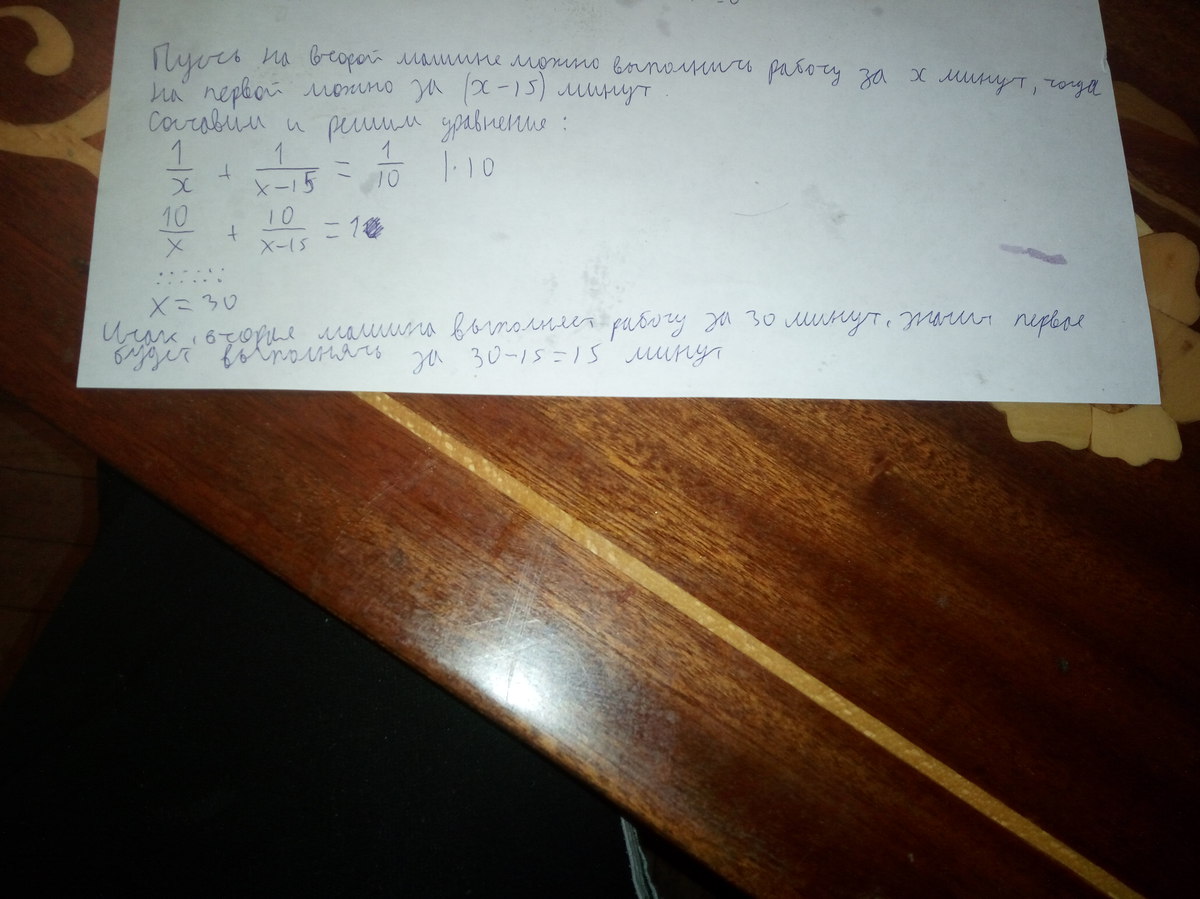 Пусть на второй машине можно выполнить работу за x минут, тогда
на первой можно за (x-15) минут.
Составим и решим уравнение:
1/x + 1/(x-15) = 1/10 |·10
10/x + 10/(x-15) = 1
x = 30
Итак, вторая машина выполняет работу за 30 минут, значит первая
будет выполнять за 30-15=15 минут